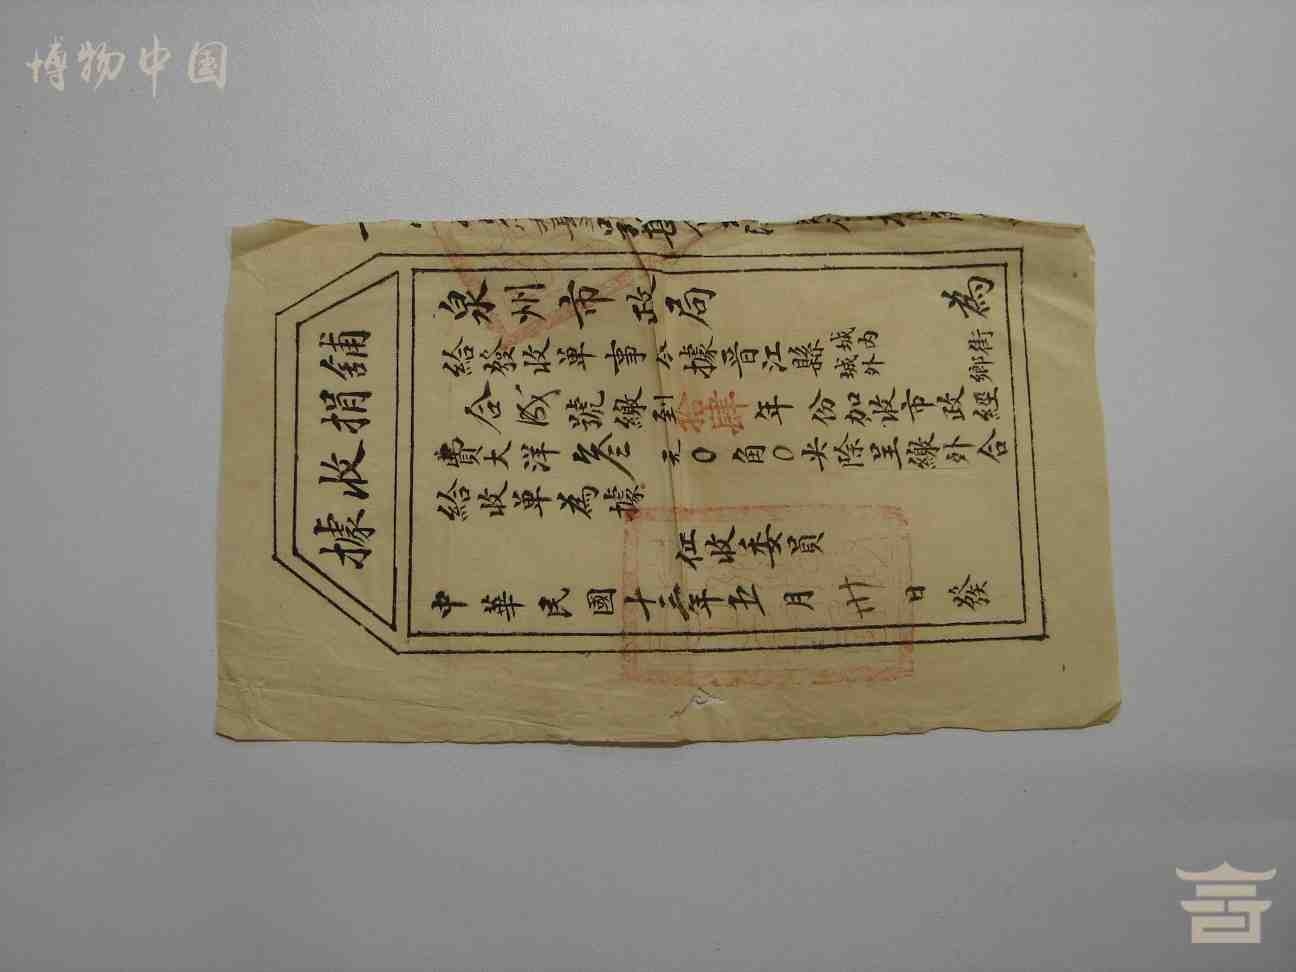 博物中国
舖捐收據
泉州市政局為
給發收单事今據晋江縣城内城外鄉街
合成號繳到拾肆年份加收市政經
費大洋叁元0角0尖除呈繳外合
給收单為據
征收委員
中華民國十三年五月卅日發